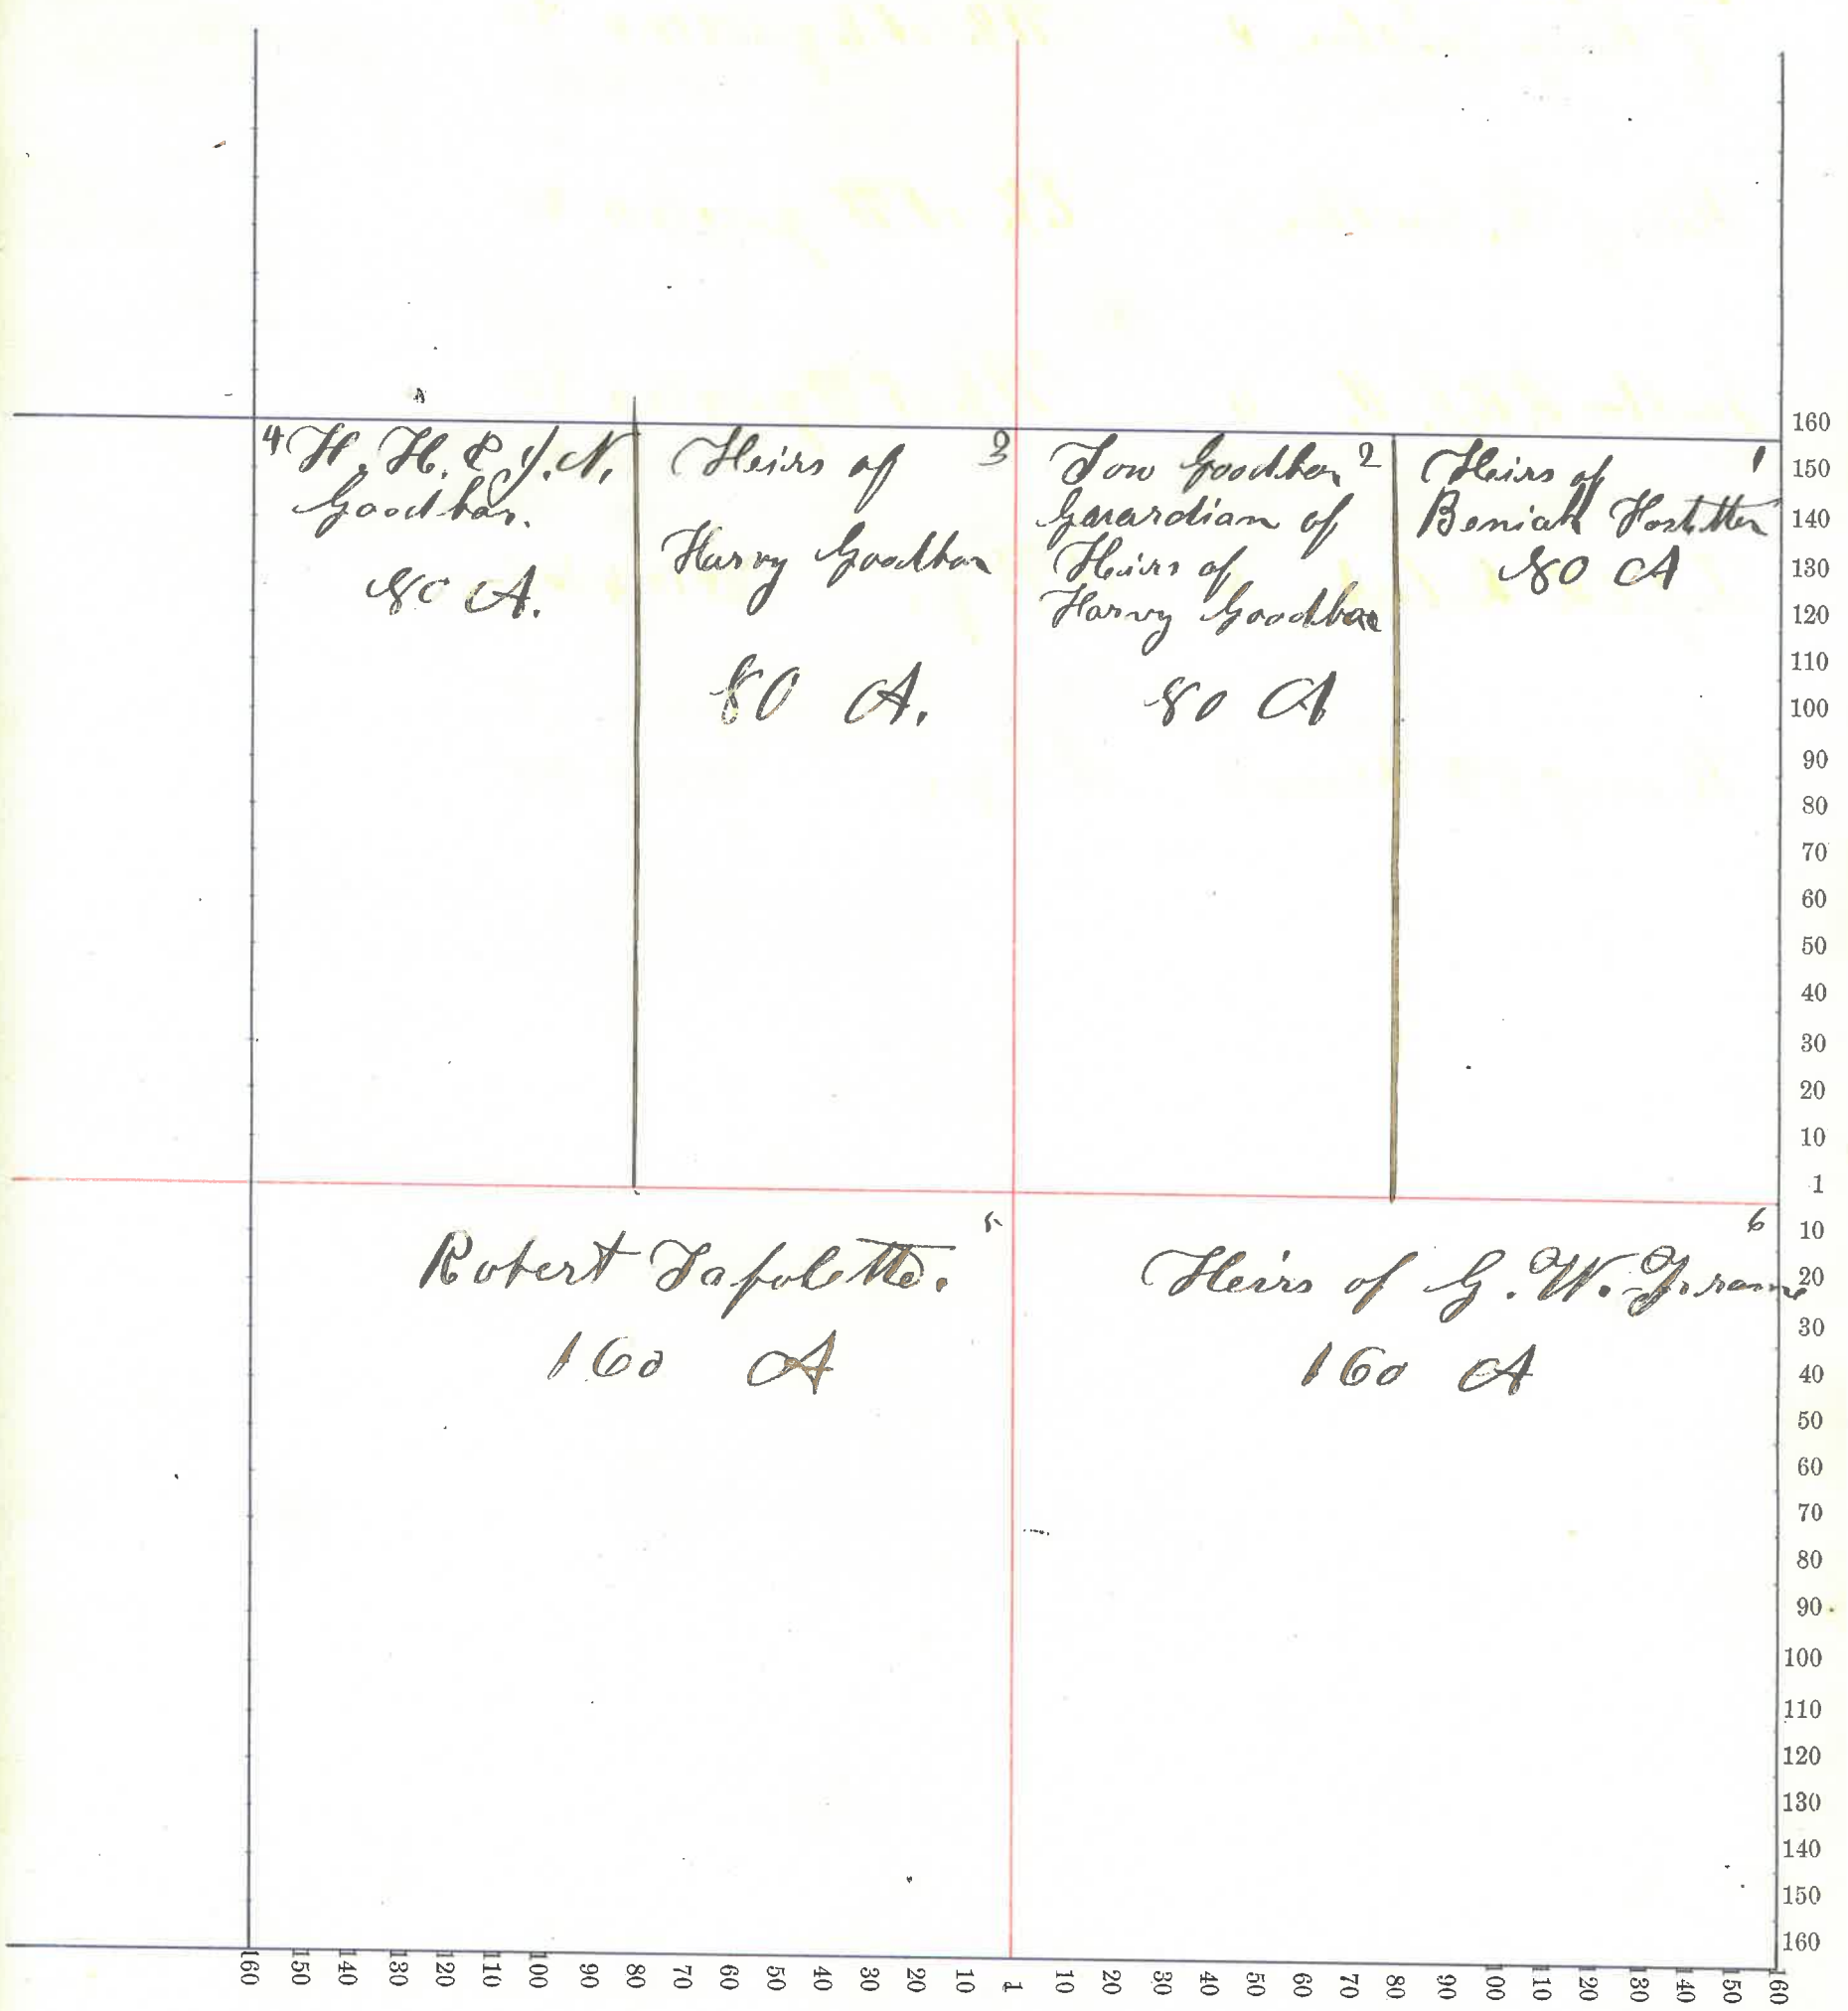 4 H. H. & J. N.
Goodbar.
80 A.
Heirs of 3
Harvy Goodbar
80 A.
Tow Goodbar 2
Garardian of
Heirs of
Harvy Goodbar
80 A
Heirs of 1
Beniah Hostetter
80 A
Robert Lafolette. 5
160 A
Heirs of G. W. Frame 6
160 A
160
150
140
130
120
110
100
90
80
70
60
50
40
30
20
10
1
10
20
30
40
50
60
70
80
90
100
110
120
130
140
150
160
160 150 140 130 120 110 100 90 80 70 60 50 40 30 20 10 1 10 20 30 40 50 60 70 80 90 100 110 120 130 140 150 160